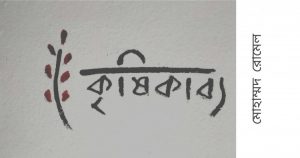 কৃষিকাব্য
মোহাম্মদ রোমেল